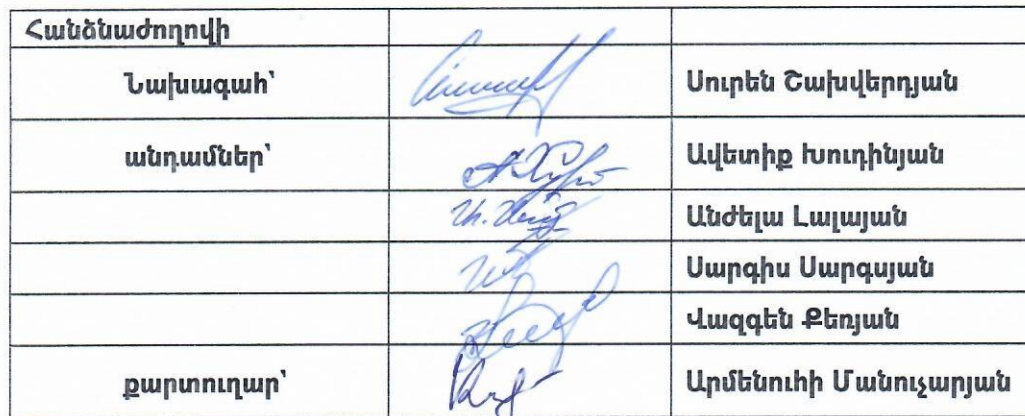 Հանձնաժողովի
Նախագահ՝ Սուրեն Շախվերդյան
անդամներ՝ Ավետիք Խուդինյան
Անժելա Լալայան
Սարգիս Սարգսյան
Վազգեն Քեռյան
քարտուղար՝ Արմենուհի Մանուչարյան